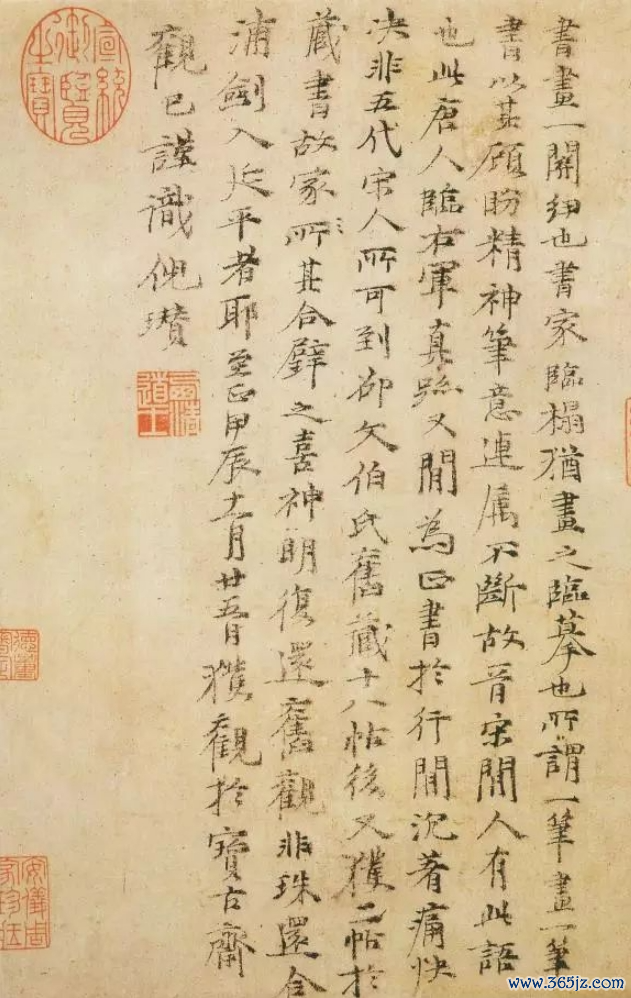 書畫一關紐也書家臨榻猶畫之臨摹也所謂一筆畫一筆
書以其顧盼精神筆意連属不斷故晉宋間人有此語
也此唐人臨右軍真跡又間為正書於行間沉著痛快
决非五代宋人所可到郤文伯氏舊藏十八帖後又獲二帖於
藏書故家所其合璧之喜神明復還舊觀非珠還合
浦劍入延平者耶至正甲辰十一月廿五日獲觀於寶古齋
觀已謹識倪瓚
宣統御覽之寶
安儀周家珍藏
www.365jz.com